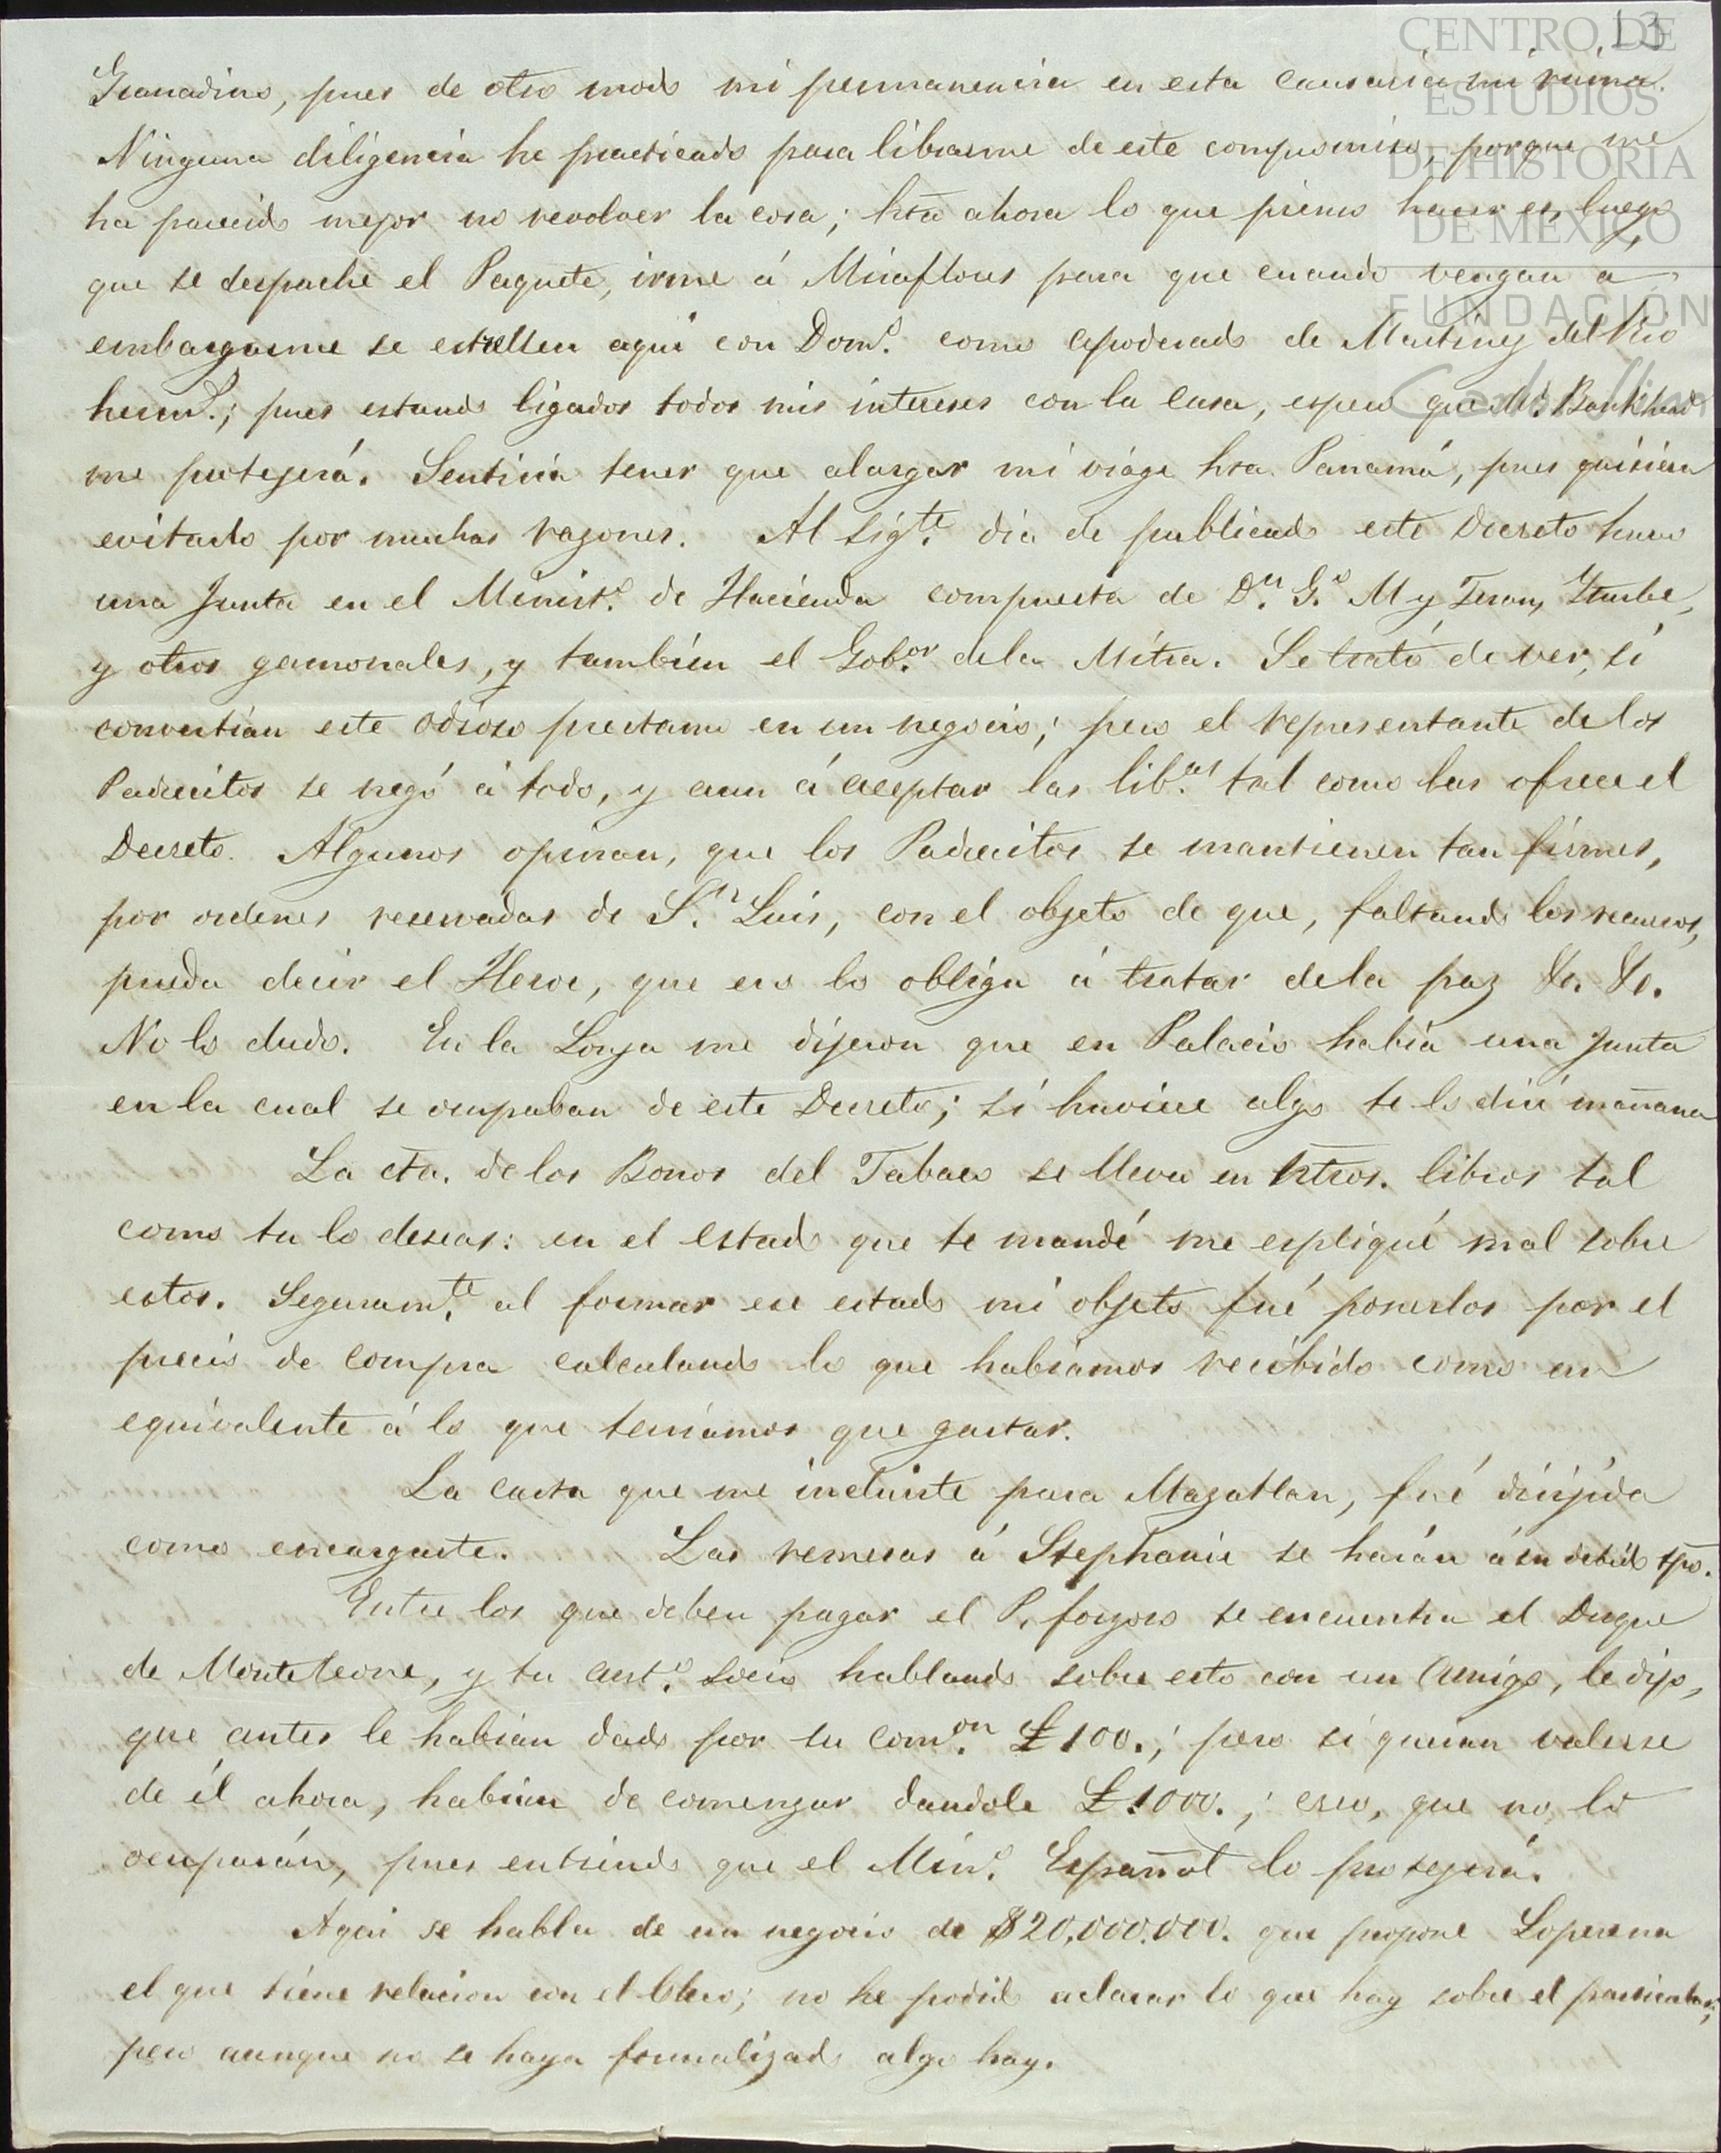 13
CENTRO DE
ESTUDIOS
DE HISTORIA
DE MÉXICO
FUNDACIÓN
Granadino, pues de otro modo mi permanencia en esta causaria mi ruina.
Ninguna diligencia he practicado para librarme de este compromiso, porque me
ha parecido mejor no revolver la cosa; hta ahora lo que pienso hacer es, luego
que se despache el Paquete, irme á Miraflores para que cuando vengan a
embargarme se estrellen aquí con Domo. como apoderado de Martinez del Rio
hermos.; pues estando ligados todos mis intereses con la casa, espero que Mr. Bankhead
me protejerá. Sentiria tener que alargar mi viage hta. Panamá, pues quisiera
evitarlo por muchas razones. Al sigte. dia de publicado este Decreto huvo
una Junta en el Ministo. de Hacienda compuesta de Dn. Go. M y Teran, Yturbe,
y otros gamonales, y tambien el Gobor. dela Mitra. Se trató de ver, si
convertian este odioso prestamo en un negocio; pero el representante de los
Padrecitos se negó á todo, y aun á aceptar las libas. tal como las ofrece el
Decreto. Algunos opinan, que los Padrecitos se mantienen tan firmes,
por ordenes reservadas de Sn. Luis, con el objeto de que, faltando los recursos,
pueda decir el Heroe, que eso lo obliga á tratar dela paz &c. &c.
No lo dudo. En la Lonja me dijeron que en Palacio habia una Junta
en la cual se ocupaban de este Decreto; si huviere algo te lo diré mañana
La cta. de los Bonos del Tabaco se lleva en ntros. libros tal
como tu lo deseas: en el estado que te mandé me espliqué mal sobre
estos. Seguramte. al formar ese estado mi objeto fué ponerlos por el
precio de compra calculando lo que habiamos recibido como un
equivalente á lo que teniamos que gastar.
La carta que me incluiste para Mazatlan, fué dirijida
como encargaste. Las remesas á Stephanie se harán á su debido tpo.
Entre los que deben pagar el P. forzoso se encuentra el Duque
de Monteleone, y tu anto. socio hablando sobre esto con un Amigo, le dijo,
que antes le habian dado por su comon. £100.; pero si querian valerse
de él ahora, habian de comenzar dandole £1000.; creo, que no lo
ocuparán, pues entiendo que el Mino. Español lo protejerá.
Aqui se habla de un negocio de $20,000.000. que propone Loperena
el que tiene relacion con el Clero; no he podido aclarar lo que hay sobre el particular;
pero aunque no se haya formalizado algo hay.